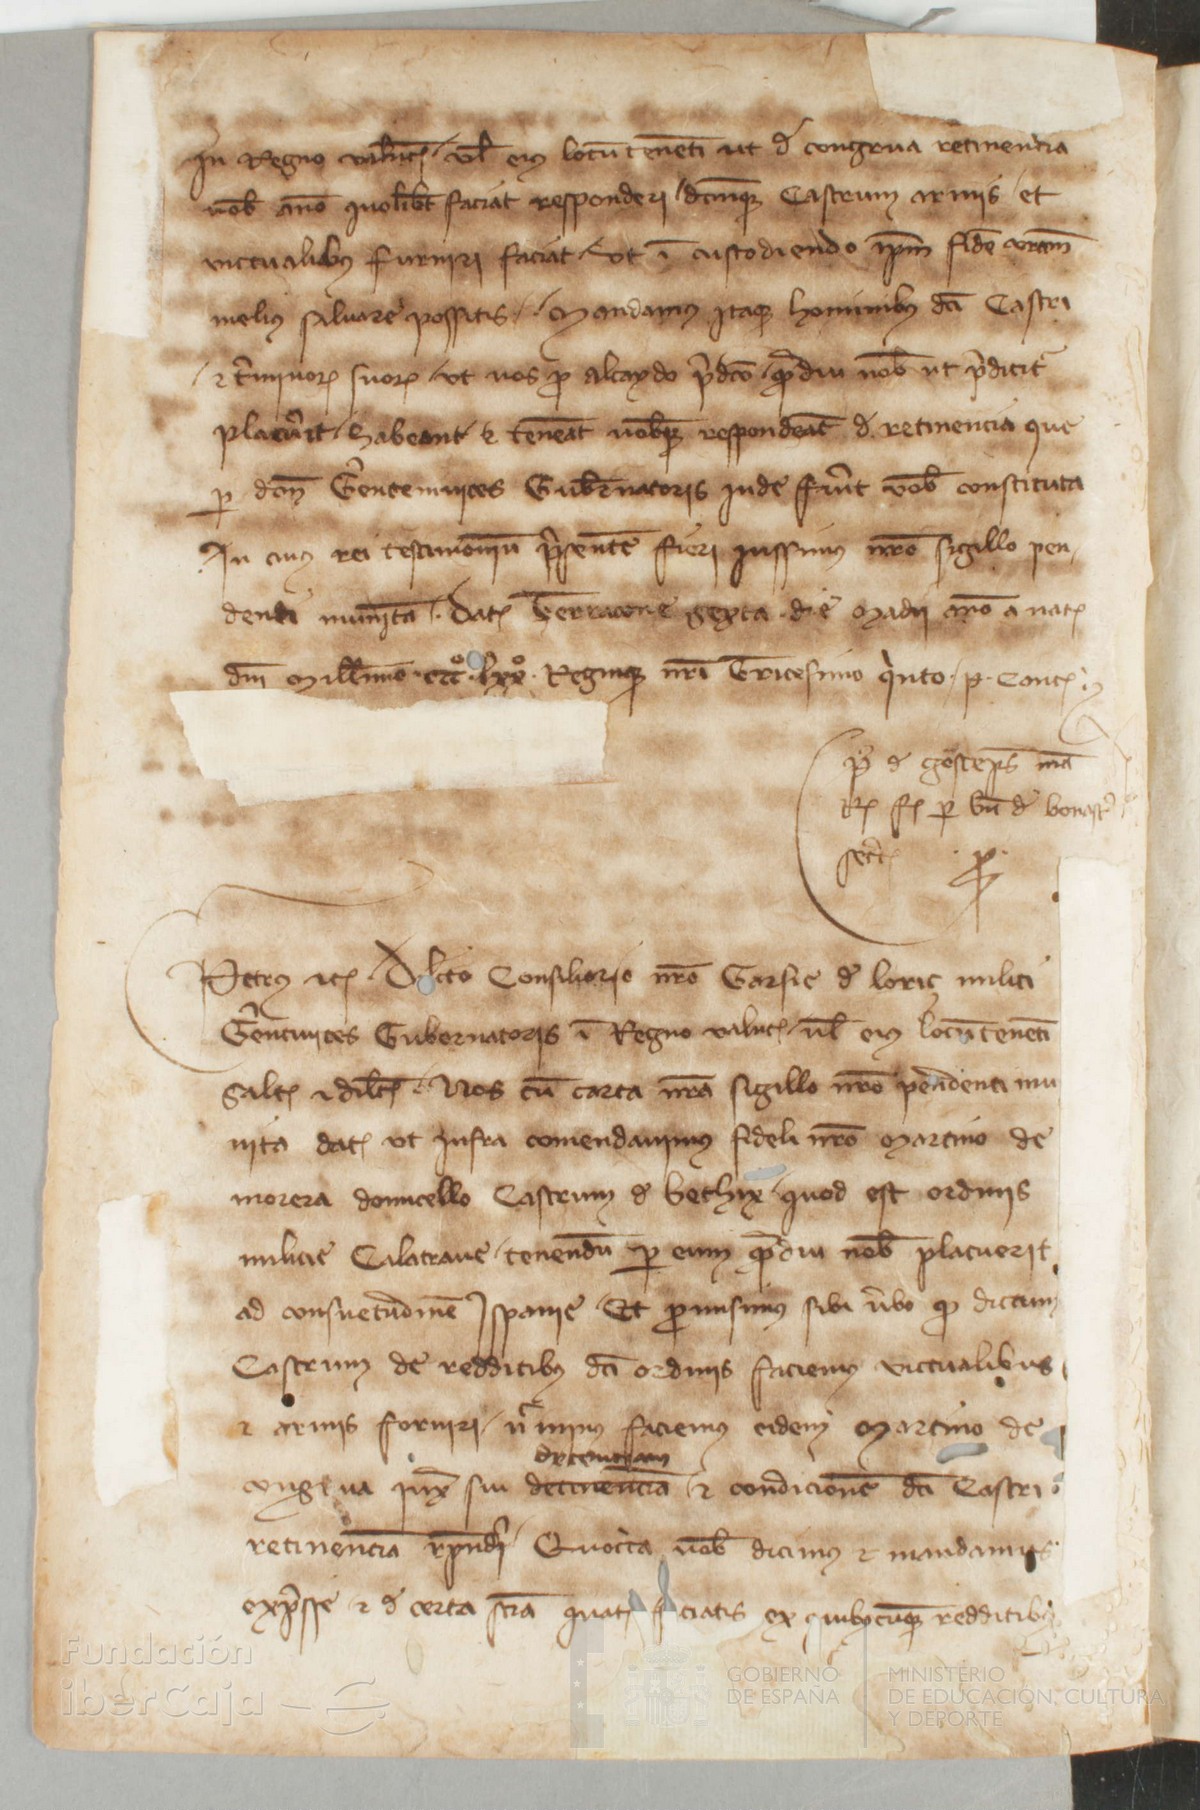 In Regno valent̄ vel eius locūtenēti ut de congrua retinencia
vob̄ anno quolibet faciat responderi dictūque Castrum armis et
victualibus furniri faciat ut ī custodiendo ip̄m fidē vr̄am
melius salvare possitis mandamus itaque hominibus dc̄i Castri
et t̄minorum suorum ut vos pro alcaydo p̄dc̄o q̄mdiu nob̄ ut p̄dicit̄
placuerit habeant et teneāt vobisque respondeāt de retinencia que
per dc̄m Gerentemvices Gubernatoris inde fuerit vob̄ constituta
In cuius rei testimoniū p̄sentē fieri iussimus nr̄o sigillo pen
denti munitā Dat̄ Terracone sexta die madii anno a nat̄
dn̄i Millesimo ccc° lxx° Regnique nr̄i Tricesimo quinto p Conc̄
secret̄
Petrus etc̄ Dilecto Consiliario nr̄o Garsie de loriç militi
Gerentivices Gubernatoris ī Regno valent̄ vel eius locūtenenti
Salt̄ et dilect̄ Nos cū carta nr̄a sigillo nr̄o pendenti mu
nita dat̄ ut infra comendavimus fideli nr̄o martino de
morera domicello Castrum de bethix quod est ordinis
milicie Calatrave tenendū per eum q̄mdiu nob̄ placuerit
ad consuetudinē Ispanie Et promisimus sibi verbo quod dictum
Castrum de redditibus dc̄i ordinis faciemus victualibus
et armis forniri n̄ minus faciemus eidem Martino de
detentiam
congrua iuxta sui detinenciā et condicionē dc̄i Castri
retinencia rn̄deri Quocirca vob̄ dicimus et mandamus
exp̄sse et de certa sc̄ia quat̄ faciatis ex quibuscūque redditibus
Fundación
iberCaja
GOBIERNO
DE ESPAÑA
MINISTERIO
DE EDUCACIÓN, CULTURA
Y DEPORTE